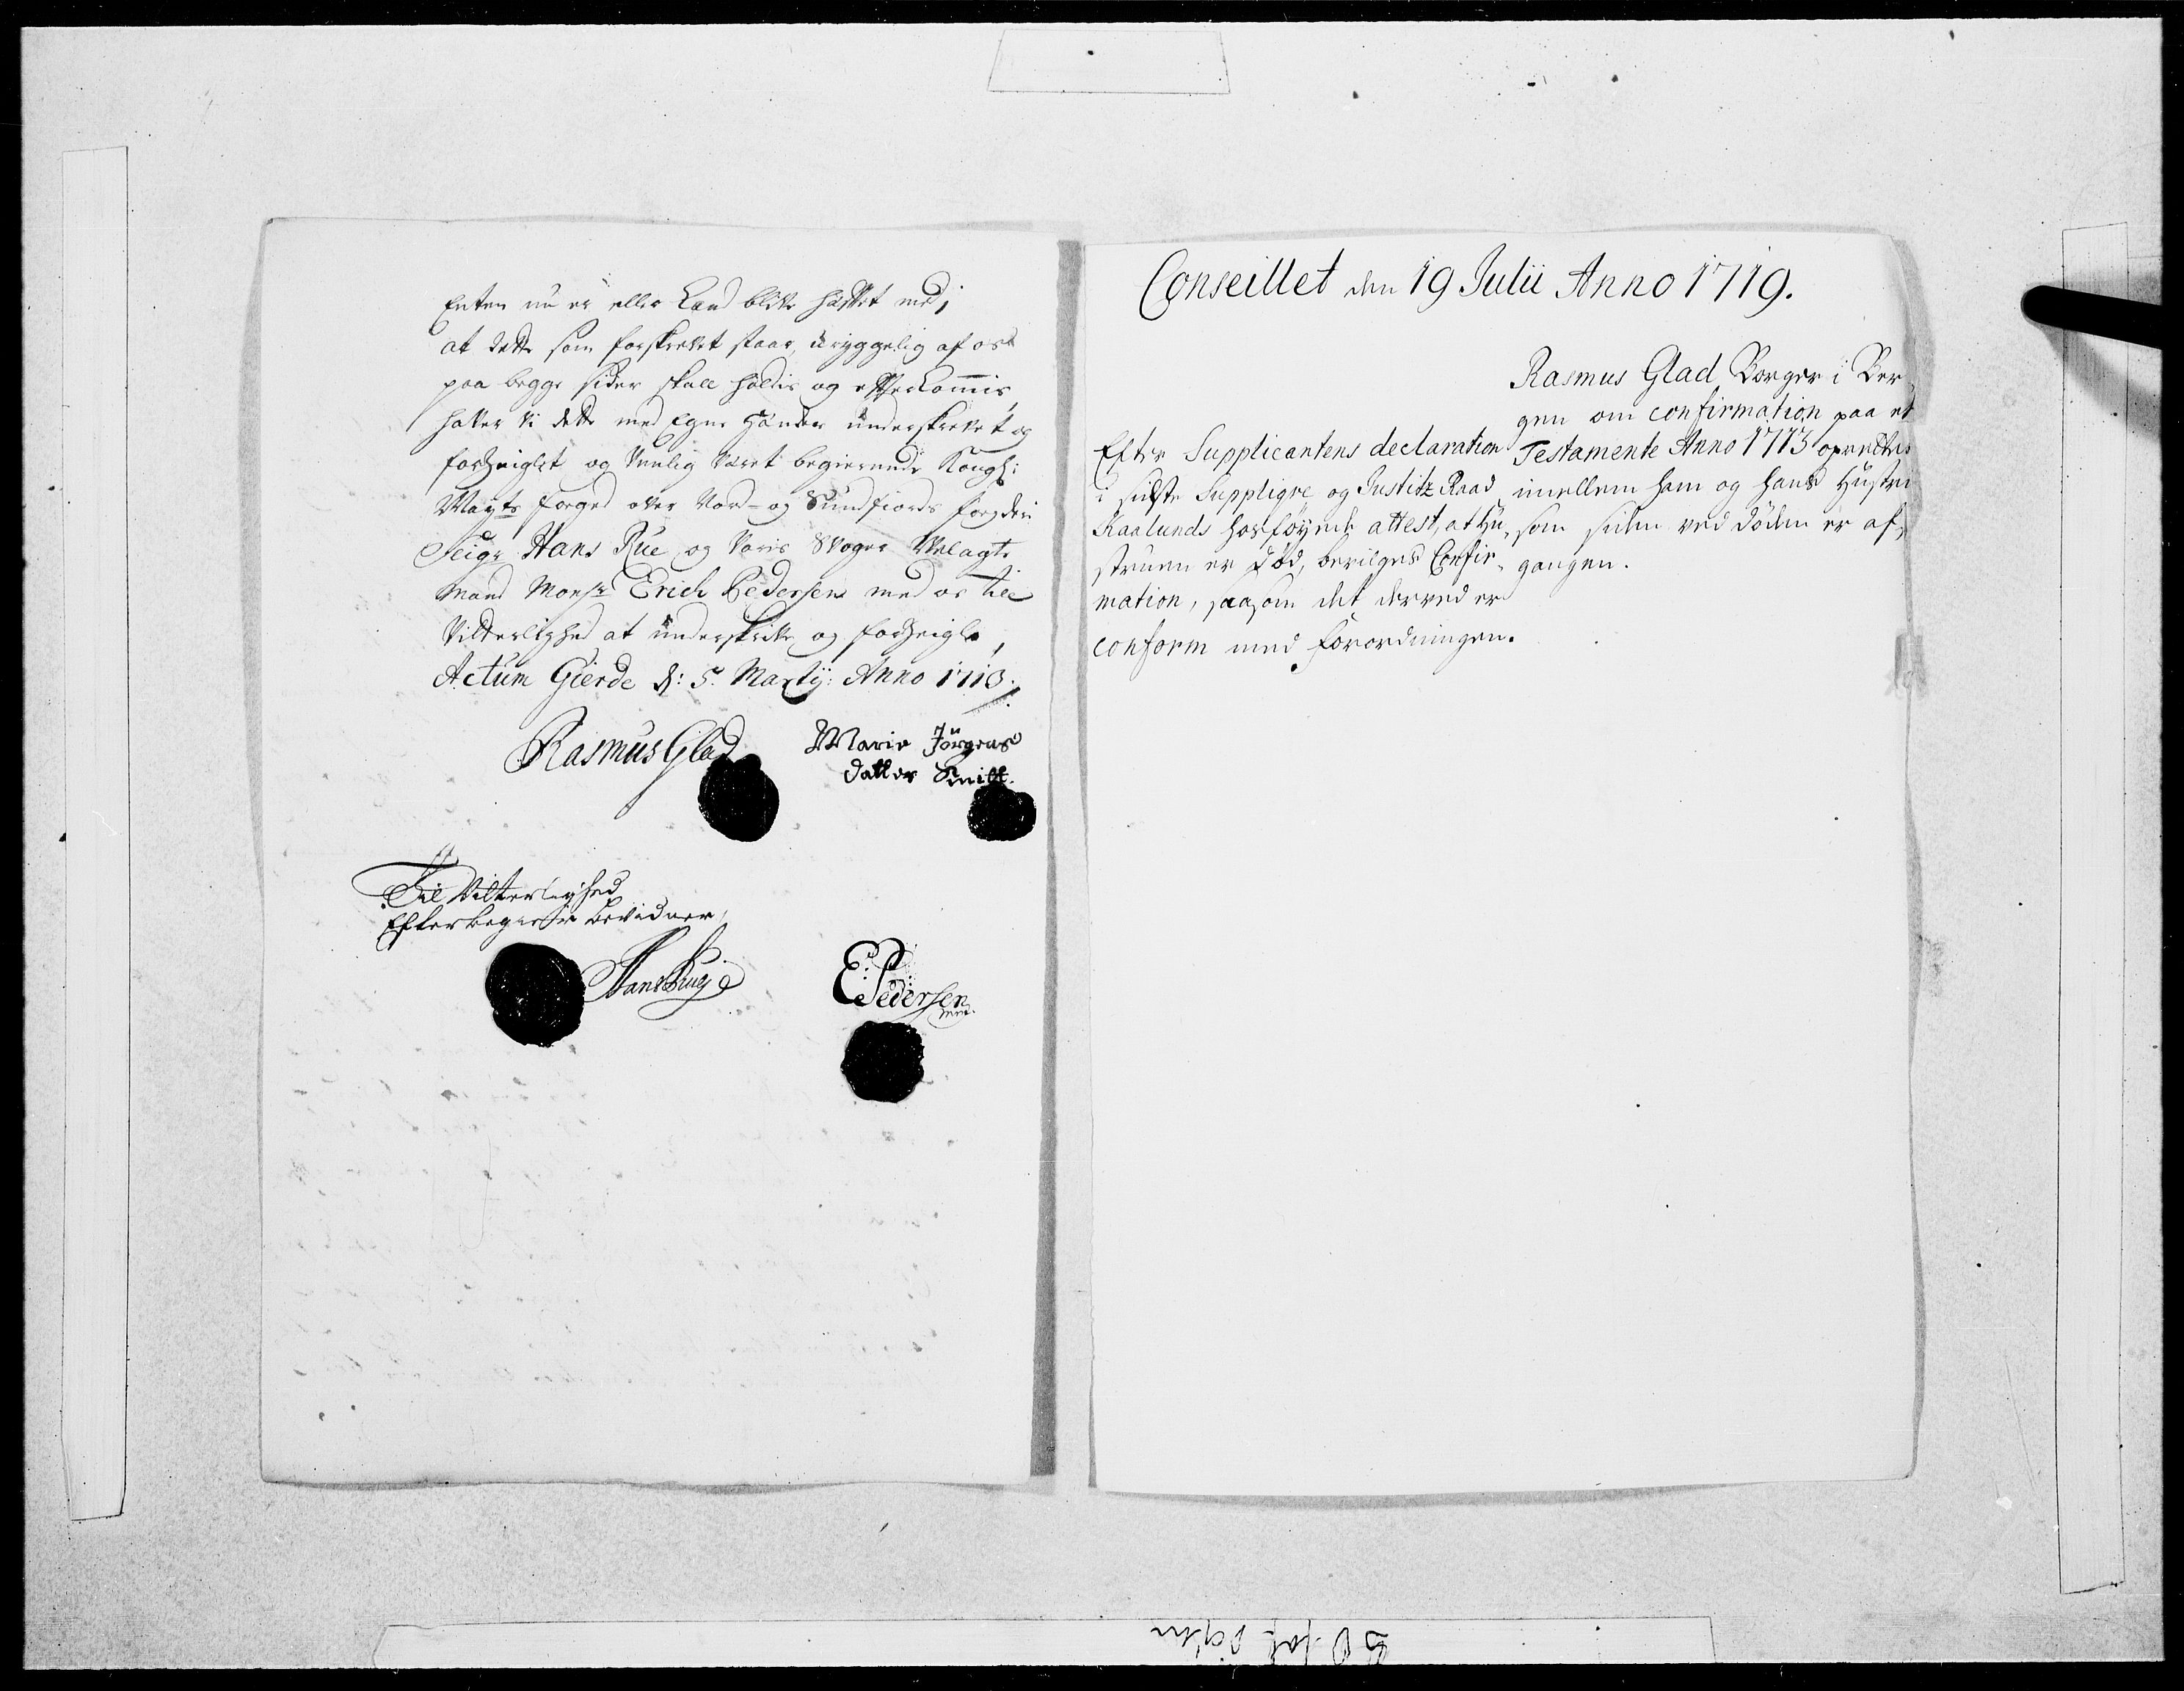 Enten nu er eller Kand blive hafftet med,
at dette som forskrevet staar, uryggelig af oss
paa begge sider skall holdis og efterkommis,
hafver vi dette med Egne Hænder underskrevet og
forseiglet og venlig været begierende Kongl:
Mayts foged over Nord- og Sundfiords fogderi
Seigr Hans Rue og Voris Svoger Velagte
Mand Monsr Erich Pedersen med os till
Vitterlighed at underskrive og forseigle,
Actum Gierde d: 5. Martij: Anno 1713.
Rasmus Glad
Marie Jörgens
datter Smitt.
Til Vitterlighed
Efter begiering bevidner,
Hans Ruej
E: Pedersen
mpp.
Conseillet den 19 Julii Anno 1719.
Rasmus Glad Borger i Ber-
gen om confirmation paa et
Testamente Anno 1713 oprettet
imellem ham og hans Hustru
som siden ved döden er af-
gangen.
Efter Supplicantens declaration
i sidste Suppliqve og Justitz Raad
Kaalunds hosföyede attest, at Hu-
struen er död, bevilges Confir-
mation, saasom det derved er
conform med Forordningen.